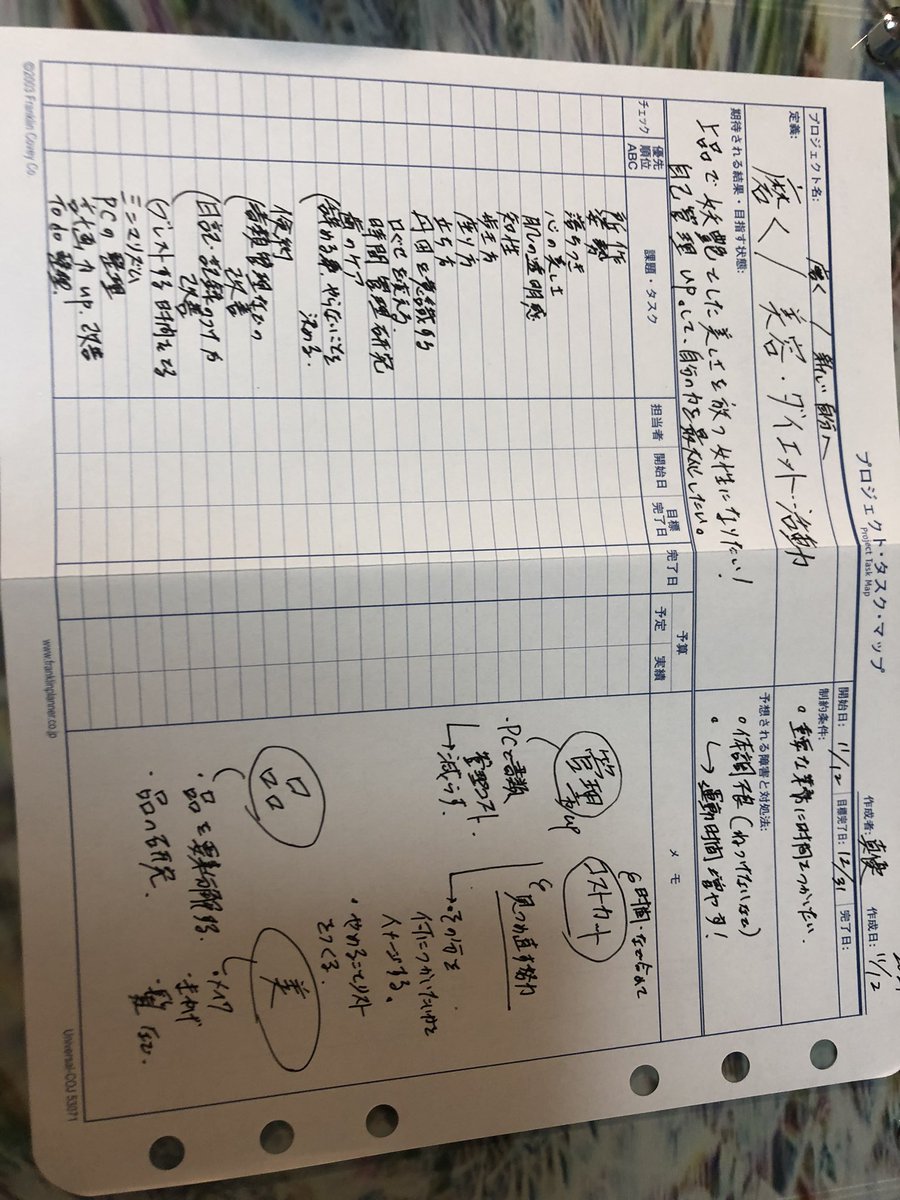 プロジェクト・タスク・マップ
Project Task Map
プロジェクト名: 磨く / 新しい自分へ
作成者: 真優
作成日: 11/12
定義: 磨く / 美容・ダイエット・活動力
開始日: 11/12
目標完了日: 12/31
完了日:
制約条件:
・重要な業務に時間をつかいたい.
期待される結果・目指す状態:
上品で妖艶でした美しさを放つ女性になりたい!
自己管理UP.して、自分の力を最大化したい。
予想される障害と対処法:
・体調不良(ねつけないなど)
↳運動時間増やす!
チェック
優先順位
ABC
課題・タスク
担当者
開始日
目標完了日
完了日
予算
予定
実績
メモ
所作
姿勢
落ちつき
心の美しさ
肌の透明感
知性
歩き方
座り方
立ち方
丹田を意識する
口ぐせを変える.
時間管理研究
歯のケア
辞める事 やらないことを
決める.
便利
書類管理などの
改善
日記・記録のつけ方
改善
ブレストする時間をとる
ミニマリズム
PCの整理
計画力UP.改善
To do 整理!
管理力up
・PCと書類
管理コスト.
↳減らす.
コストカット
時間・など含めて
見つめ直す努力
その分を
何につかいたいかを
イメージする。
・やめることリスト
をつくる.
品
・品を要素分解する.
・品の研究.
美
・メイク
・まつげ
・髪 など.
©2003 Franklin Covey Co
www.franklinplanner.co.jp
Universal-COJ 53071